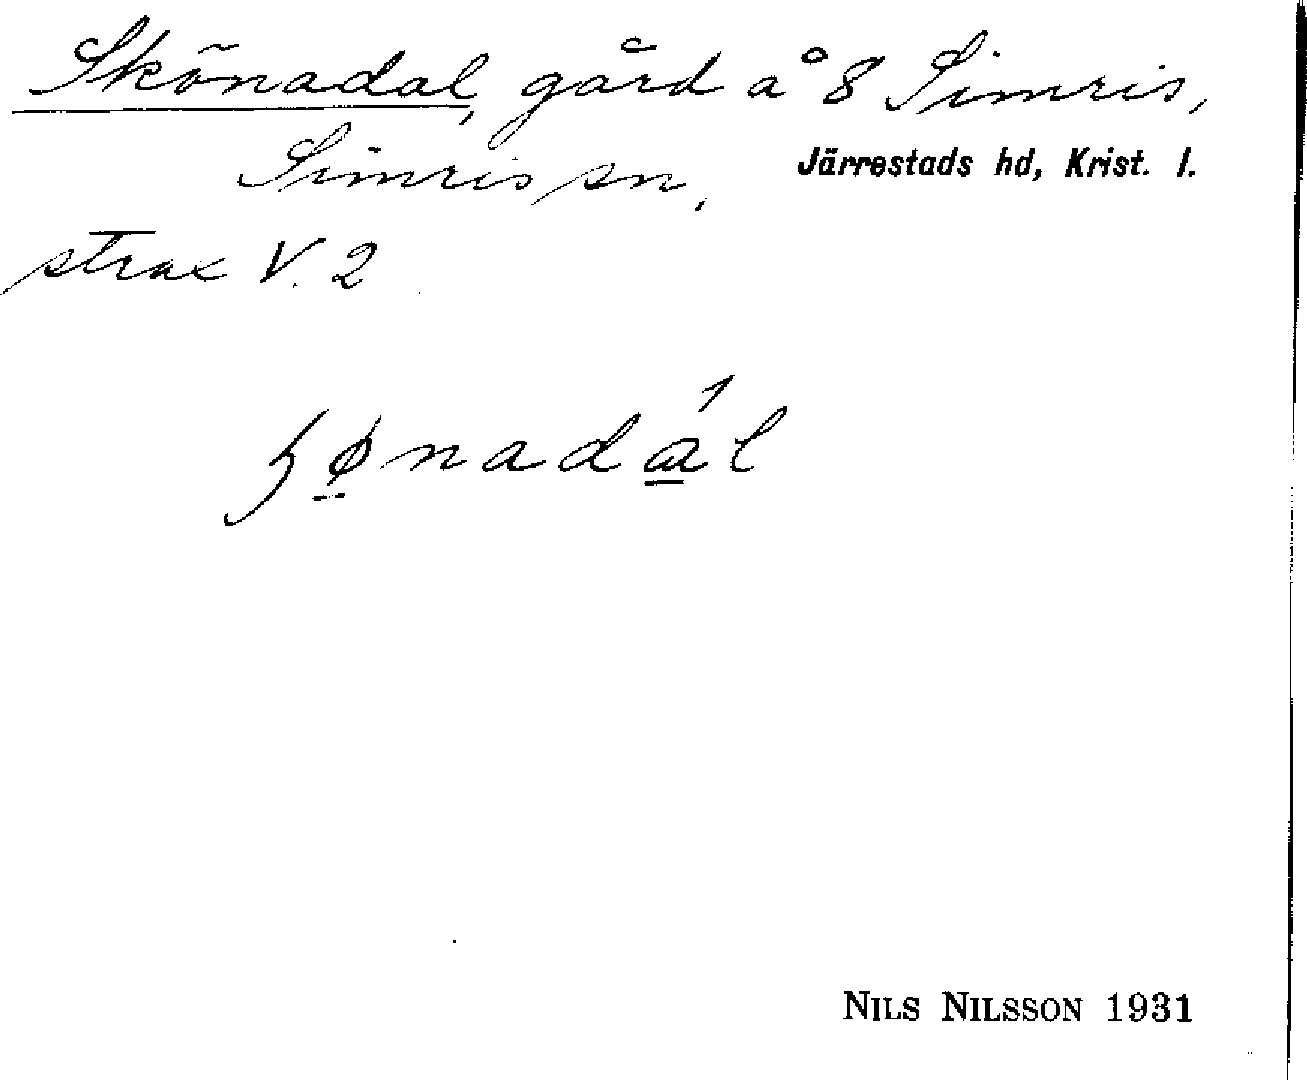 Skönadal, gård å 8 Simris,
Simris sn, Järrestads hd, Krist. l.
strax V. 2
ʃø̱nada̱´l
NILS NILSSON 1931